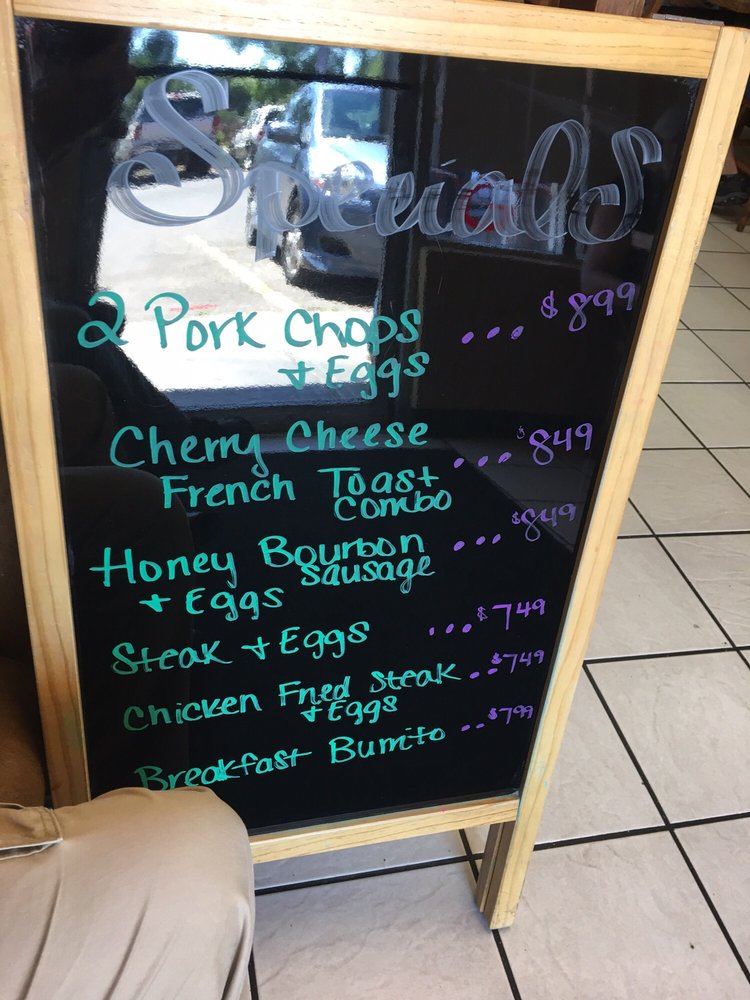 Specials
2 Pork Chops ... $899
+ Eggs
Cherry Cheese
French Toast ... $849
Combo
Honey Bourbon ... $849
Sausage
+ Eggs
Steak + Eggs ... $749
Chicken Fried Steak .. $749
+ Eggs
Breakfast Burrito .. $799